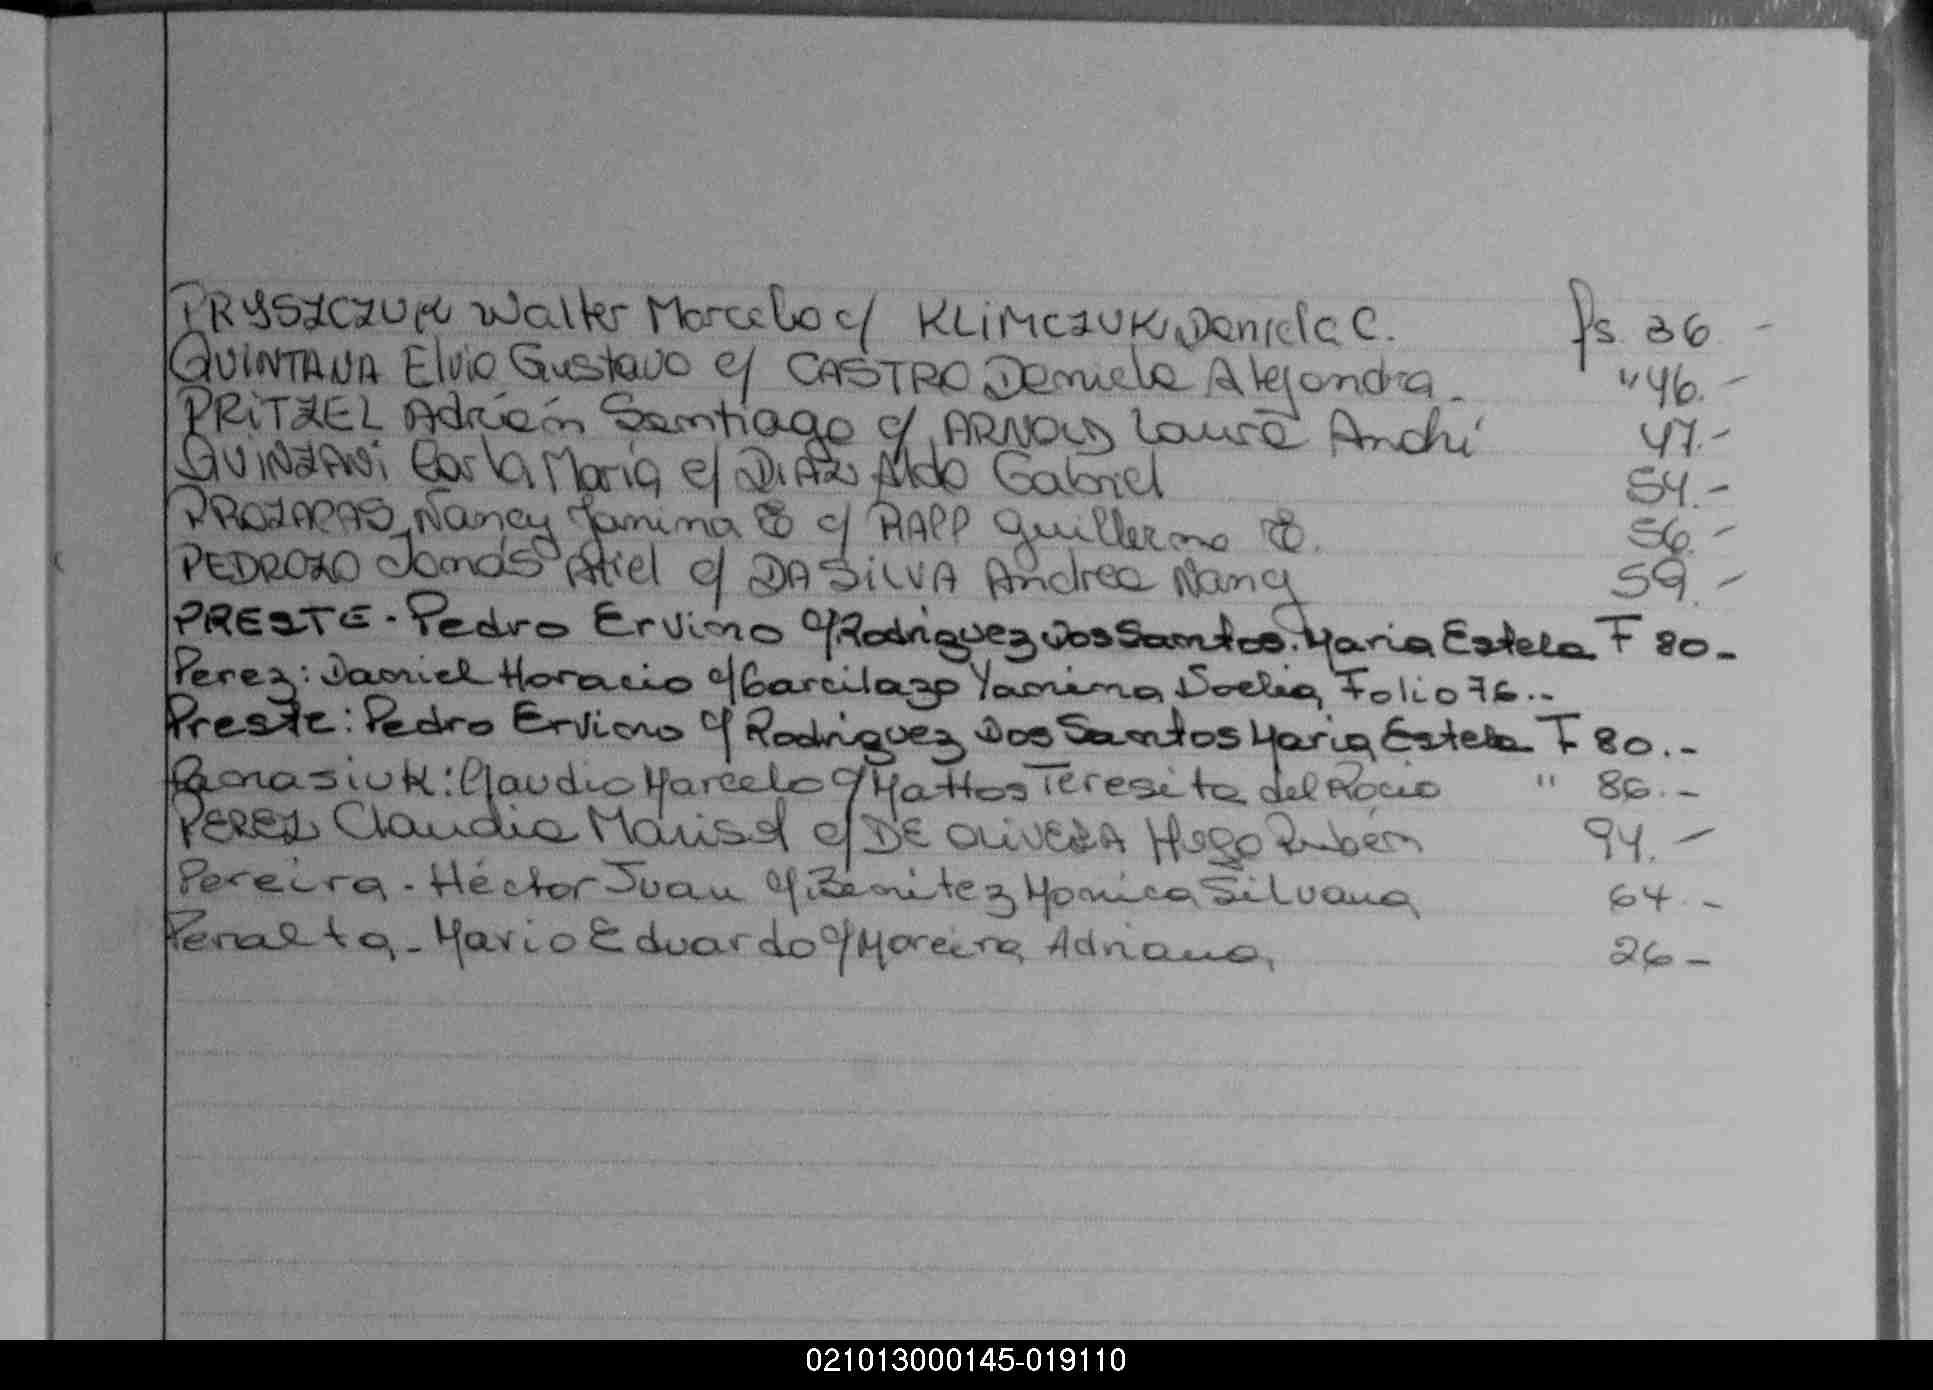 PRYSZCZUK Walter Marcelo c/ KLiMCZUK Daniela C. fs. 36 -
QUINTANA Elvio Gustavo c/ CASTRO Daniela Alejandra. " 46.-
PRiTZEL Adrián Santiago c/ ARNOLD Laura Andri 47.-
QUiNZANi Carla María c/ DiAZ Aldo Gabriel 54.-
Nancy Janina E c/ RAPP Guillermo E. 56.-
PEDROZO Tomás Atiel c/ DA SiLVA Andrea Nancy 59.-
PRESTE - Pedro Ervino c/ Rodriguez Dos Santos. Maria Estela F 80-
Perez: Daniel Horacio c/ Garcilazo Yanina Noelia Folio 76..
Preste: Pedro Ervino c/ Rodriguez Dos Santos Maria Estela F 80.-
Panasiuk: Claudio Marcelo c/ Mattos Teresita del Rocio " 86.-
PEREZ Claudia Marisol c/ DE OLiVERA Hugo Rubén 94.-
Pereira - Héctor Juan c/ Benitez Monica Silvana 64.-
Peralta - Mario Eduardo c/ Moreira Adriana, 26-
021013000145-019110